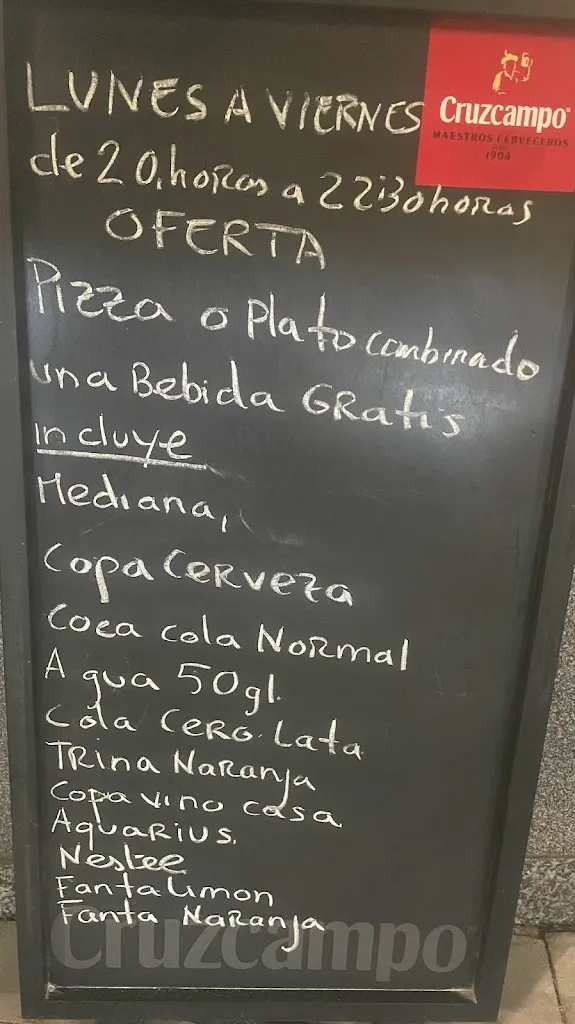 Cruzcampo
MAESTROS CERVECEROS
1904
LUNES A VIERNES
de 20.horas a 22:30 horas
OFERTA
Pizza o Plato combinado
una Bebida GRatis
incluye
Mediana,
Copa CERVEZA
Coca cola NORmal
Agua 50 gl.
Cola CERO Lata
TRina NaRanja
Copa vino casa
AquaRIUS.
Nestee
Fanta limon
Fanta NaRanja
Cruzcampo